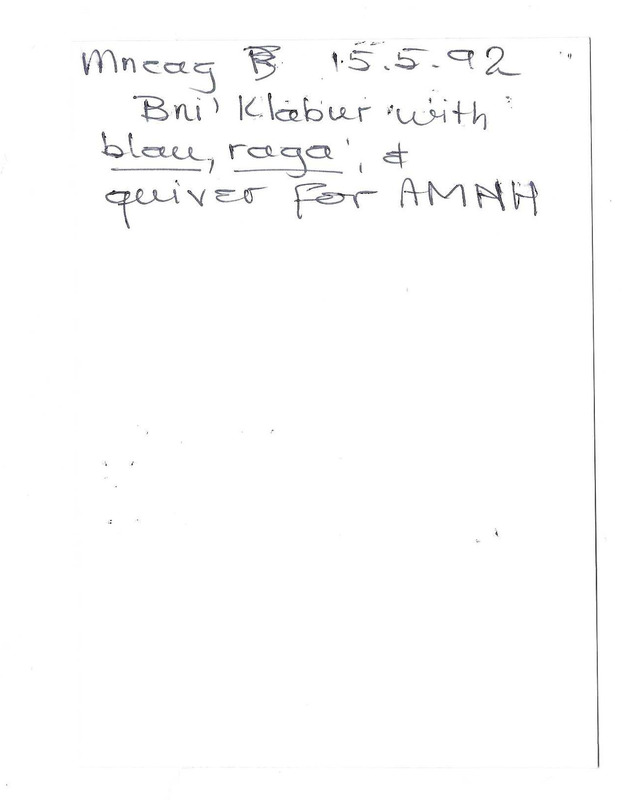 Mncag B 15.5.92
Bni' Klabur with
blau, raga', &
quiver for AMNH